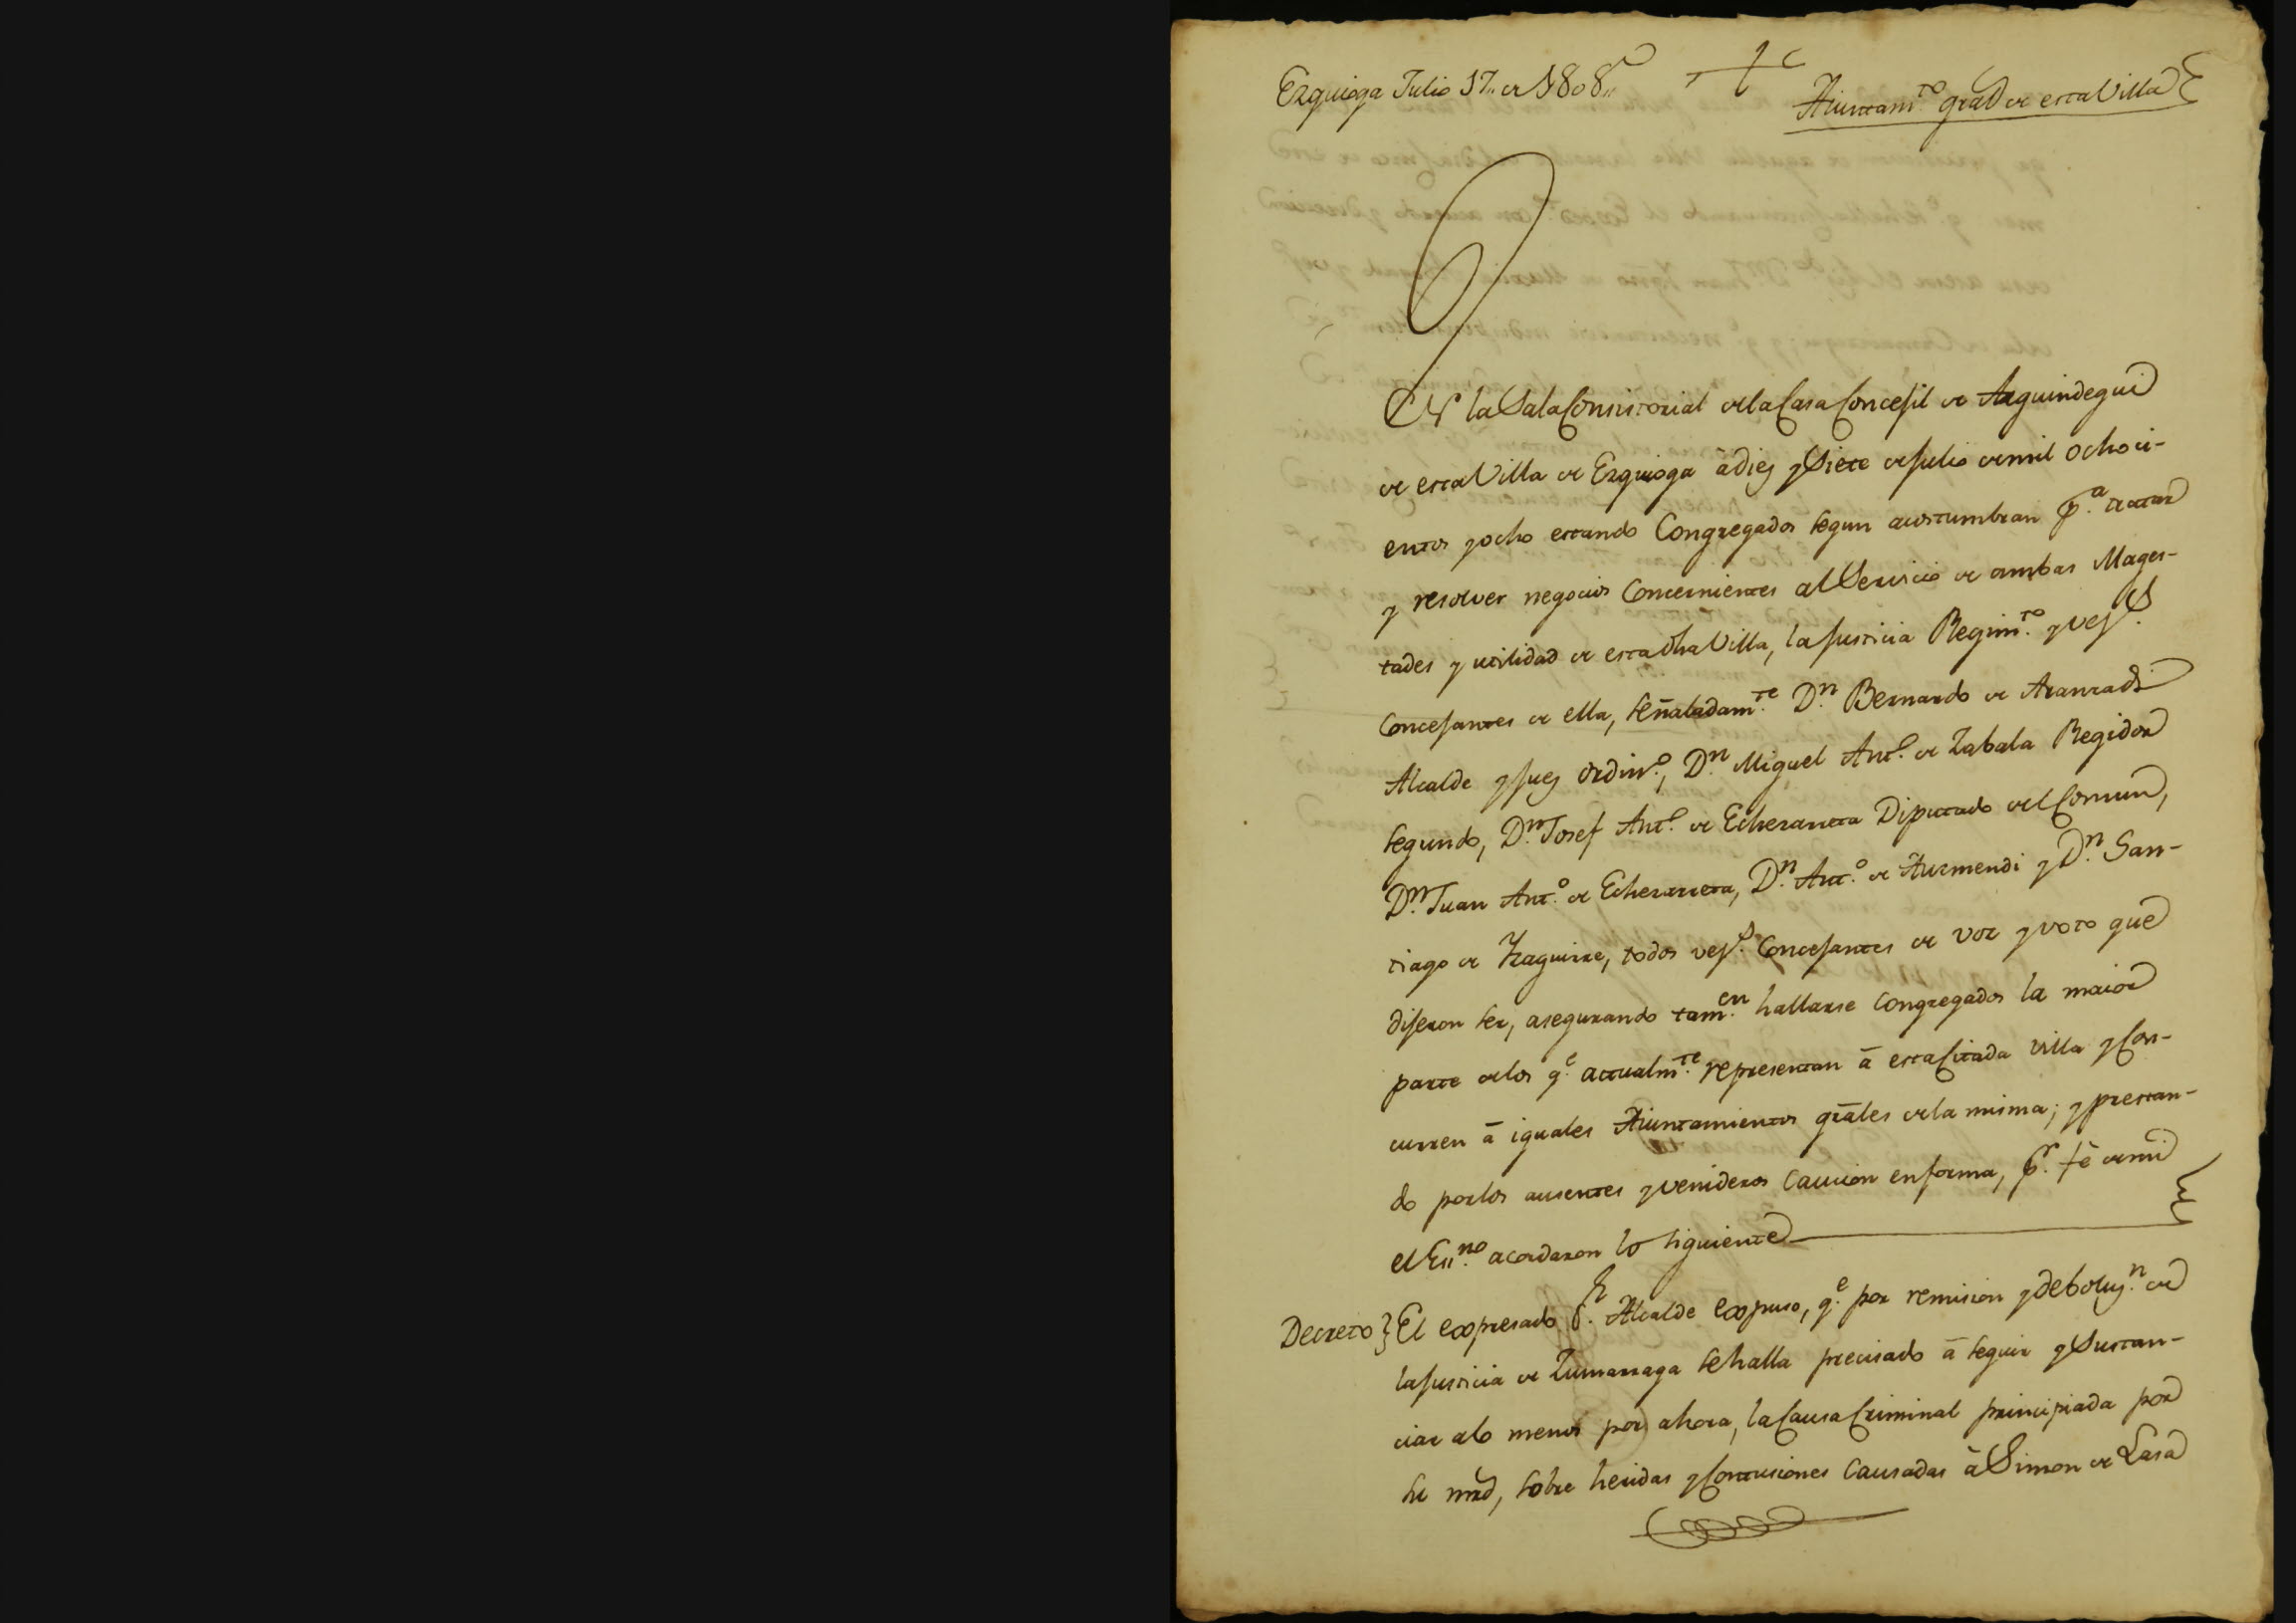 Ezquioga Julio 17,, de 1808,,
Aiuntam.to gral de esta Villa
En la Sala Consistorial de la Casa Concejil de Arguindegui
de esta Villa de Ezquioga à diez y Siete de Julio de mil ochoci-
entos y ocho estando Congregados segun acostumbran p.a tratar
y resolver negocios Concernientes al Servicio de ambas Mages-
tades y utilidad de esta dha Villa, la Justicia Regim.to y vez.s
Concejantes de ella, señaladam.te D.n Bernardo de Aranzadi
Alcalde y Juez ordin.o, D.n Miguel Ant.o de Zabala Regidor
segundo, D.n Josef Ant.o de Echezarreta Diputado del Comun,
D.n Juan Ant.o de Echezarreta, D.n Ant.o de Aurmendi y D.n San-
tiago de Yzaguirre, todos vez.s Concejantes de voz y voto que
dijeron ser, asegurando tam.en hallarse congregados la maior
parte de los q.e actualm.te representan à esta Citada villa y Con-
curren à iguales Aiuntamientos gräles de la misma; y prestan-
do por los ausentes y venideros Caucion en forma, p.r fè de mi
el Es.no acordaron lo siguiente
Decreto } El expresado S.r Alcalde expuso, q.e por remision y deboluz.n de
la Justicia de Zumarraga se halla precisado à seguir y Sustan-
ciar alo menos por ahora, la Causa Criminal principiada por
su mrd, sobre heridas y Contusiones causadas à Simon de Lasa